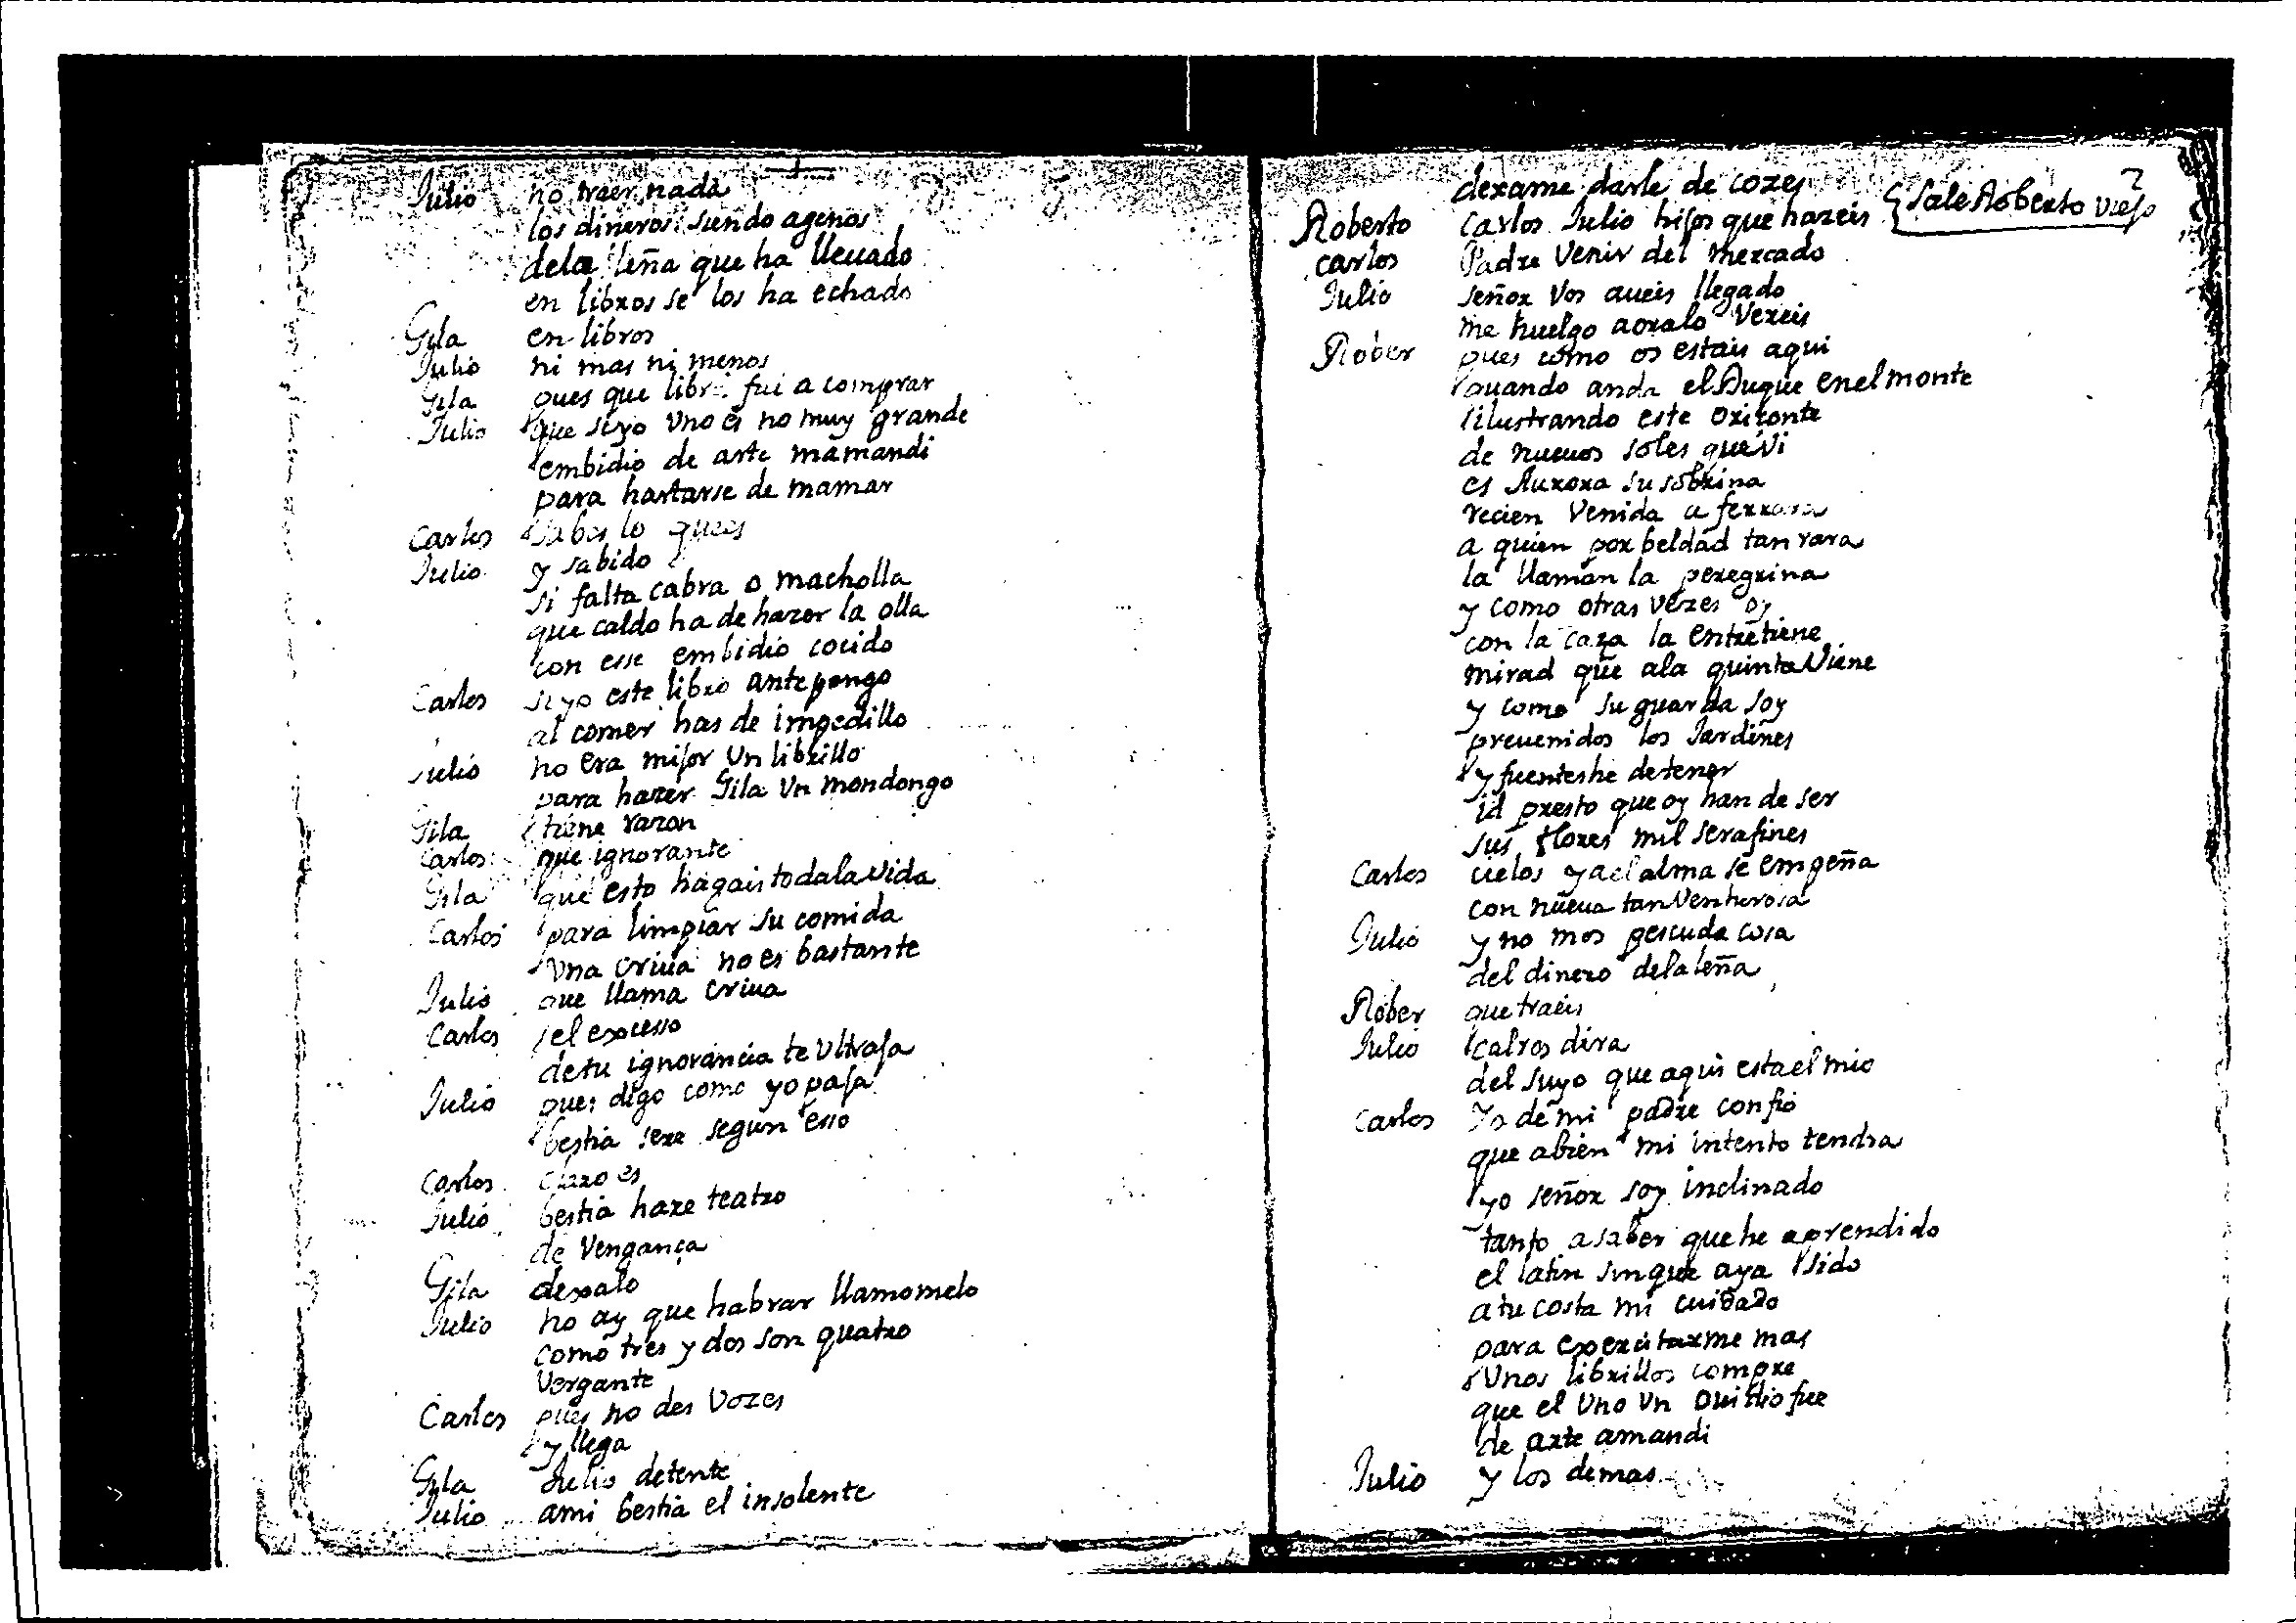 Julio no traer nada
los dineros siendo agenos
dela leña que ha lleuado
en libros se los ha echado
Gila en libros
Julio ni mas ni menos
Gila pues que libro fui a comprar
Julio que se yo Vno es no muy grande
embidio de arte mamandi
para hartarse de mamar
Carlos sabes lo ques
Julio y sabido
si falta cabra o macholla
que caldo ha de hazer la olla
con esse embidio cocido
Carlos si yo este libro antepongo
al comer has de impedillo
Julio no era mijor Vn librillo
para hazer Gila Vn mondongo
Gila tiene razon
Carlos que ignorante
Gila que esto hagais toda la vida
Carlos para limpiar su comida
Vna criua no es bastante
Julio que llama criua
Carlos el excesso
de tu ignorancia te Vltraja
Julio pues digo como yo paja
bestia sere segun esso
Carlos claro es
Julio bestia haze teatro
de Vengança
Gila dexalo
Julio no ay que habrar llamomelo
como tres y dos son quatro
Vergante
Carlos pues no des Vozes
y llega
Gila Julio detente
Julio ami bestia el insolente
2
dexame darle de cozes
Roberto Carlos Julio hijos que hazeis {Sale Roberto viejo
Carlos Padre Venir del mercado
Julio señor Vos aueis llegado
me huelgo aoralo Vereis
Rober pues como os estais aqui
quando anda el Duque enel monte
ilustrando este orizonte
de nueuos soles que Vi
es Aurora su sobrina
recien Venida a ferrara
a quien por beldad tan rara
la llaman la peregrina
y como otras vezes oy
con la caza la entretiene
mirad que ala quinta Viene
y como su guarda soy
preuenidos los Jardines
y fuentes he de tener
id presto que oy han de ser
sus flores mil serafines
Carlos cielos ya el alma se empeña
con nueua tan Venturosa
Julio y no mos pescuda cosa
del dinero dela leña
Rober que traeis
Julio Calros dira
del suyo que aqui esta el mio
Carlos Yo de mi padre confio
que abien mi intento tendra
yo señor soy inclinado
tanto a saber que he aprendido
el latin sin que aya sido
a tu costa mi cuidado
para exercitarme mas
Vnos librillos compre
que el Vno Vn Ouidio fue
de arte amandi
Julio y los demas